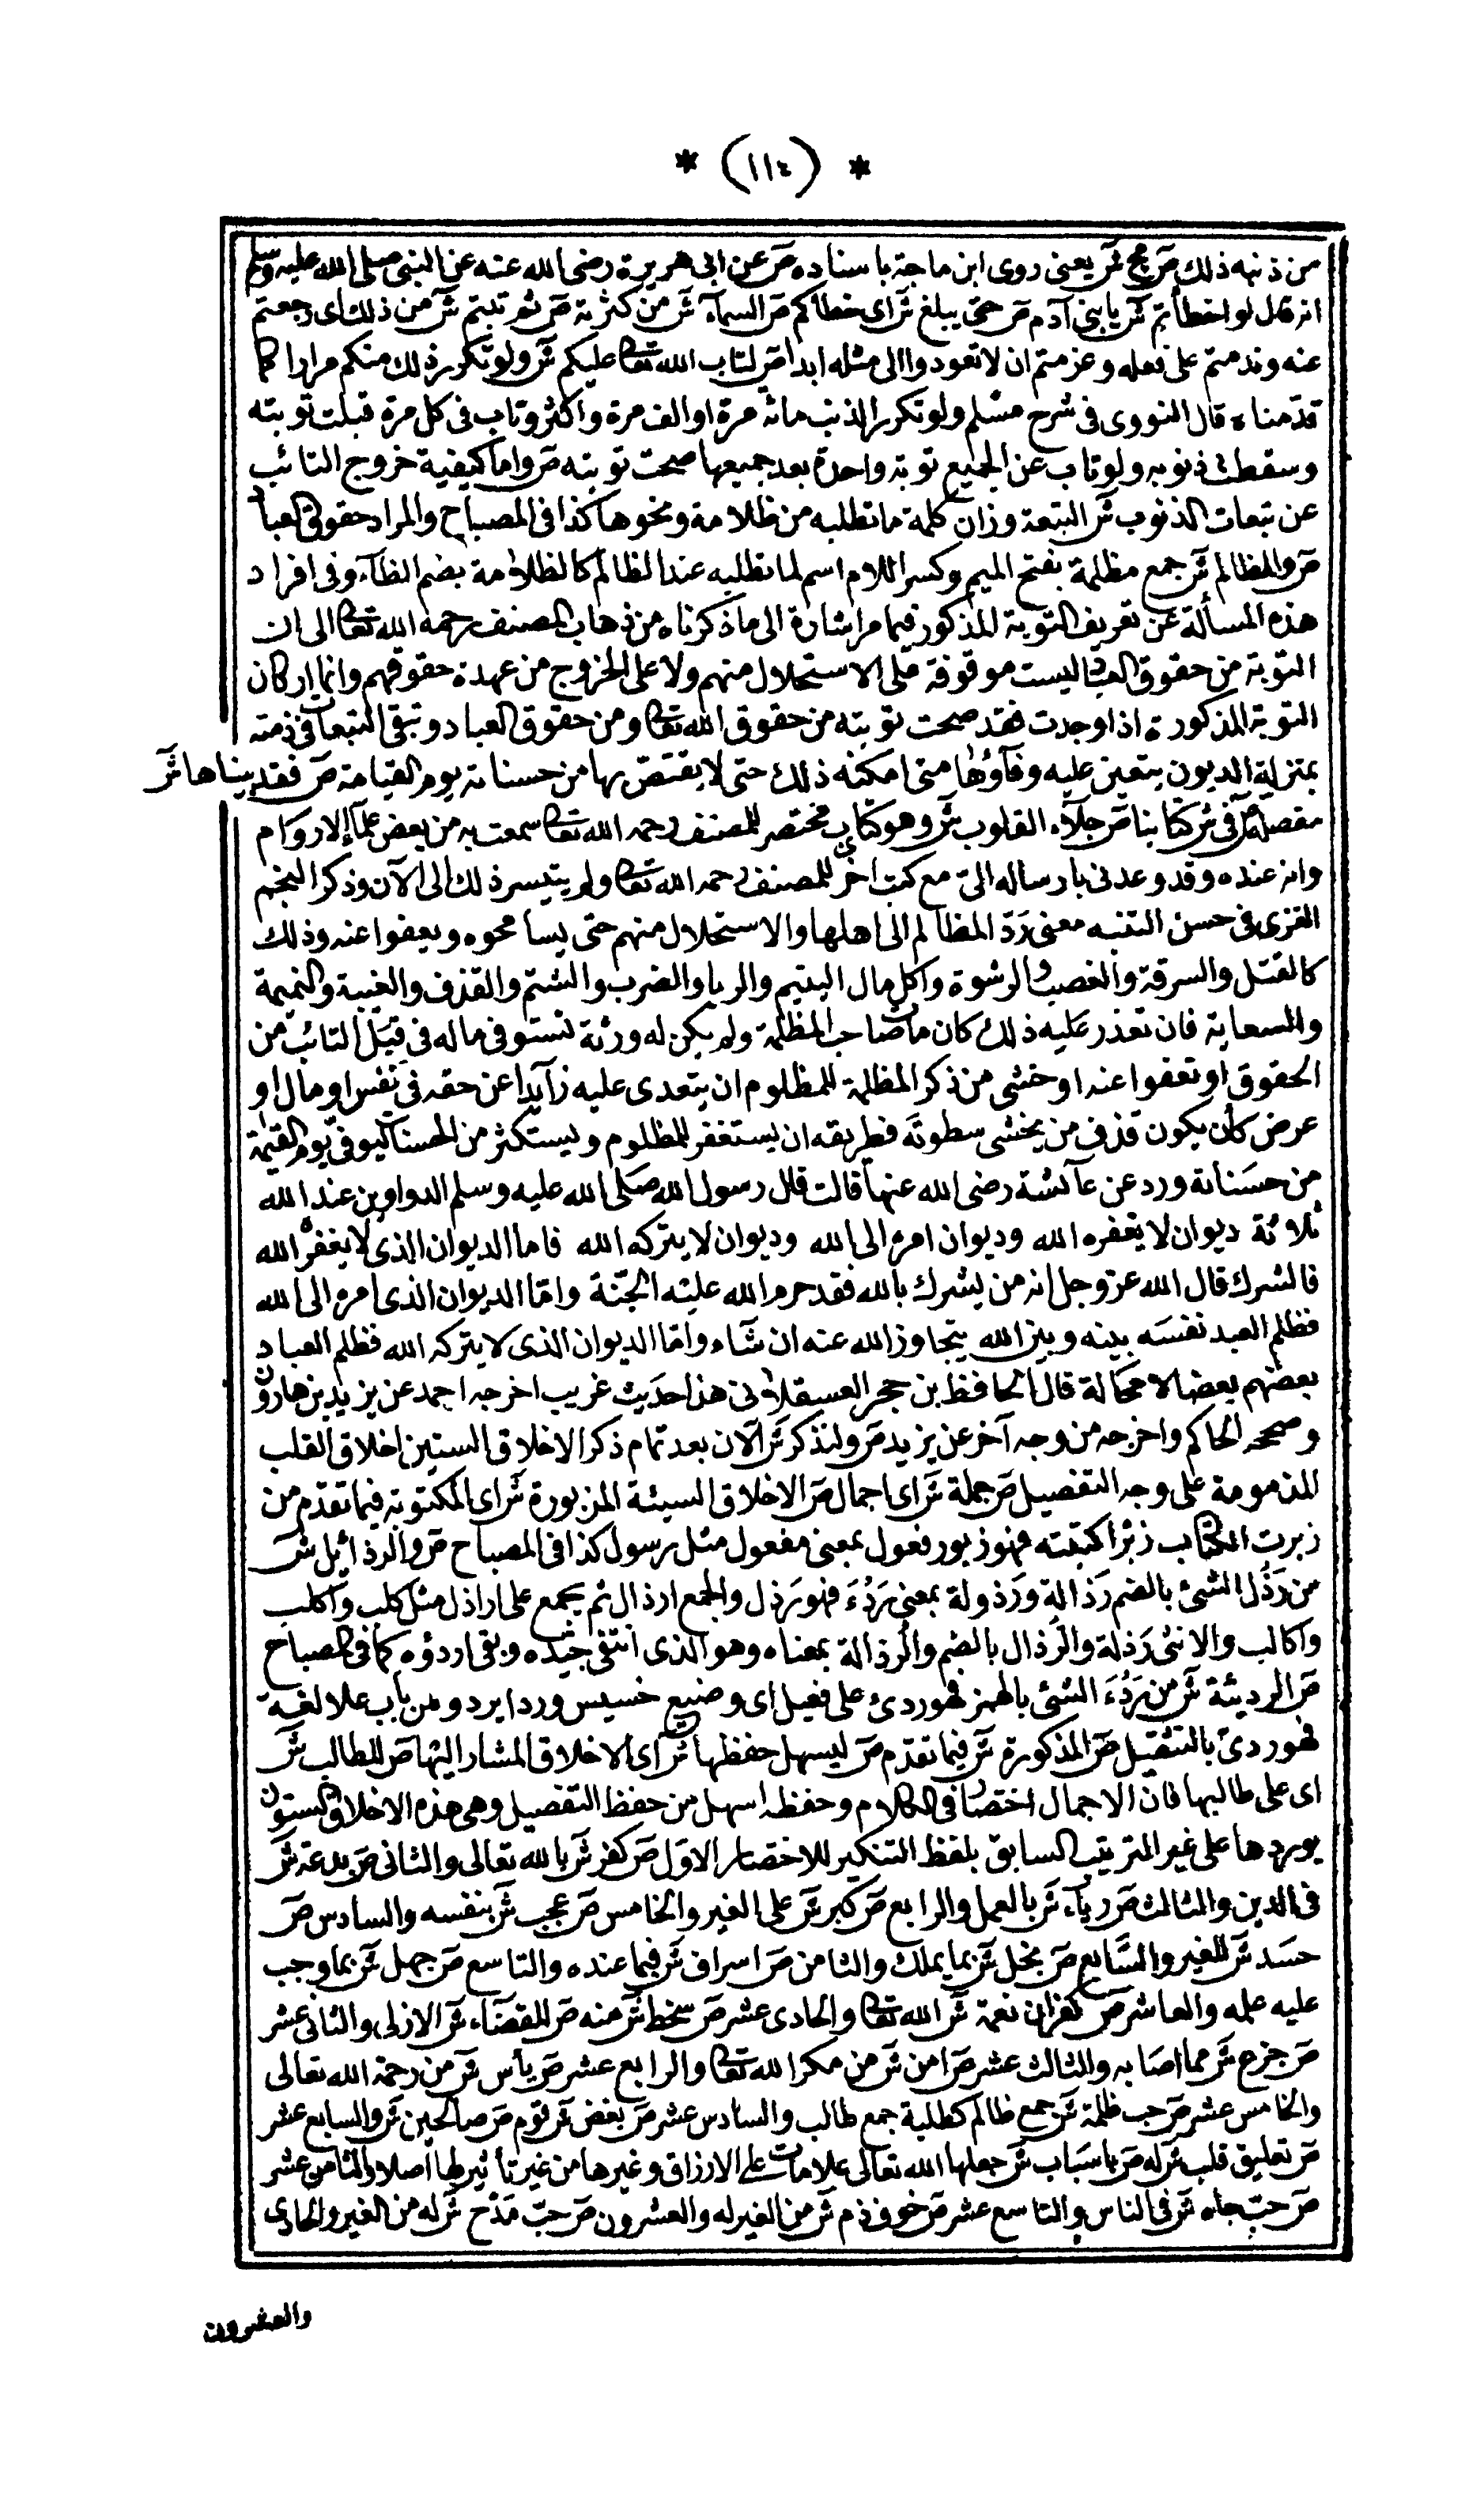 * (١١٤) *
من ذنبه ذلك ص مج ش يعنى روى ابن ماجة باسناده ص عن ابى هريرة رضى الله عنه عن النبى صلى الله عليه وسلم
انه قال لو اخطأتم ش يا بنى آدم ص حتى يبلغ ش اى خطاكم ص السماء ش من كثرته ص ثم تبتم ش من ذلك اى رجعتم
عنه وندمتم على فعله وعزمتم ان لا تعودوا الى مثله ابدا ص لتاب الله تعا عليكم ش ولو تكرر ذلك منكم مرارا كما
قدمناه قال النووى فى شرح مسلم ولو تكرر الذنب مائة مرة او الف مرة واكثر وتاب فى كل مرة قبلت توبته
وسقطت ذنوبه ولو تاب عن الجميع توبة واحدة بعد جميعها صحت توبته ص واما كيفية خروج التائب
عن تبعات الذنوب ش التبعة وزان كلمة ما تطلبه من ظلامة ونحوها كذا فى المصباح والمراد حقوق العباد
ص والمظالم ش جمع مظلمة بفتح الميم وكسر اللام اسم لما تطلبه عند الظالم كالظلامة بضم الظاء وفى افراد
هذه المسألة عن تعريف التوبة المذكور فيما مر اشارة الى ما ذكرناه من ذهاب المصنف رحمه الله تعا الى ان
التوبة من حقوق العباد ليست موقوفة على الاستحلال منهم ولا على الخروج من عهدة حقوقهم وانما اركان
التوبة المذكورة اذا وجدت فقد صحت توبته من حقوق الله تعا ومن حقوق العباد وتبقى التبعات فى ذمته
بمنزلة الديون يتعين عليه وفاؤها متى امكنه ذلك حتى لا يقتص بها من حسناته يوم القيامة ص فقد بيناها ش
مفصلة ص فى ش كتابنا ص جلاء القلوب ش وهو كتاب مختصر للمصنف رحمه الله تعا سمعت به من بعض علماء الاروام
وانه عنده وقد وعدنى بارساله الى مع كتب اخرى للمصنف رحمه الله تعا ولم يتيسر ذلك الى الآن وذكر النجم
الغزى فى حسن التنبه معنى رد المظالم الى اهلها والاستحلال منهم حتى يسامحوه ويعفوا عنه وذلك
كالقتل والسرقة والغصب والرشوة واكل مال اليتيم والربا والضرب والشتم والقذف والغيبة والنميمة
والسعاية فان تعذر عليه ذلك كان مات صاحب المظلمة ولم يكن له ورثة تستوفى ماله فى قبل التائب من
الحقوق او تعفوا عنه او خشى من ذكر المظلمة للمظلوم ان يتعدى عليه زايدا عن حقه فى نفس او مال او
عرض كأن يكون قذف من يخشى سطوته فطريقه ان يستغفر للمظلوم ويستكثر من الحسنات ليوفى يوم القيمة
من حسناته ورد عن عائشة رضى الله عنها قالت قال رسول الله صلى الله عليه وسلم الدواوين عند الله
ثلاثة ديوان لا يغفره الله وديوان امره الى الله وديوان لا يتركه الله فاما الديوان الذى لا يغفره الله
فالشرك قال الله عز وجل انه من يشرك بالله فقد حرم الله عليه الجنة واما الديوان الذى امره الى الله
فظلم العبد نفسه بينه وبين الله يتجاوز الله عنه ان شاء واما الديوان الذى لا يتركه الله فظلم العباد
بعضهم بعضا لا محالة قال الحافظ بن حجر العسقلانى هذا حديث غريب اخرجه احمد عن يزيد بن هارون
وصححه الحاكم واخرجه من وجه آخر عن يزيد ص ولنذكر ش الآن بعد تمام ذكر الاخلاق الستين اخلاق القلب
المذمومة على وجه التفصيل ص جملة ش اى اجمال ص الاخلاق السيئة المزبورة ش اى المكتوبة فيما تقدم من
زبرت الكتاب زبرا كتبته فهو زبور فعول بمعنى مفعول مثل رسول كذا فى المصباح ص والرذائيل ش
من رذل الشئ بالضم رذالة ورذولة بمعنى ردء فهو رذل والجمع ارذال ثم يجمع على اراذل مثل كلب واكلب
واكالب والانثى رذلة والرذال بالضم والرذالة بمعناه وهو الذى انتفى جيده وبقى اردؤه كما فى المصباح
ص الرديئة ش من ردء الشئ بالهمز فهو ردئ على فعيل اى وضيع خسيس وردا يردو من باب علا لغة
فهو ردى بالتثقيل ص المذكورة ش فيما تقدم ص ليسهل حفظها ش اى الاخلاق المشار اليها ص للطالب ش
اى على طالبها فان الاجمال اختصار فى الكلام وحفظه اسهل من حفظ التفصيل وهى هذه الاخلاق الستون
يوردها على غير الترتيب السابق بلفظ التنكير للاختصار الاول ص كفر ش بالله تعالى والثانى ص بدعة ش
فى الدين والثالث ص رياء ش بالعمل والرابع ص كبر ش على الغير والخامس ص عجب ش بنفسه والسادس ص
حسد ش للغير والسابع ص بخل ش بما يملك والثامن ص اسراف ش فيما عنده والتاسع ص جهل ش بما وجب
عليه علمه والعاشر ص كفران نعمة ش الله تعا والحادى عشر ص سخط ش منه ص للقضاء ش الازلى والثانى عشر
ص جزع ش مما اصابه والثالث عشر ص امن ش من مكر الله تعا والرابع عشر ص يأس ش من رحمة الله تعالى
والخامس عشر ص حب ظلمة ش جمع ظالم كطلبة جمع طالب والسادس عشر ص بغض ش لقوم ص صالحين ش والسابع عشر
ص تعليق قلب ش له ص باسباب ش جعلها الله تعالى علامات على الارزاق وغيرها من غير تأثير لها اصلا والثامن عشر
ص حب جاه ش فى الناس والتاسع عشر ص خوف ذم ش من الغير له والعشرون ص حب مدح ش له من الغير والحادى
والعشرون